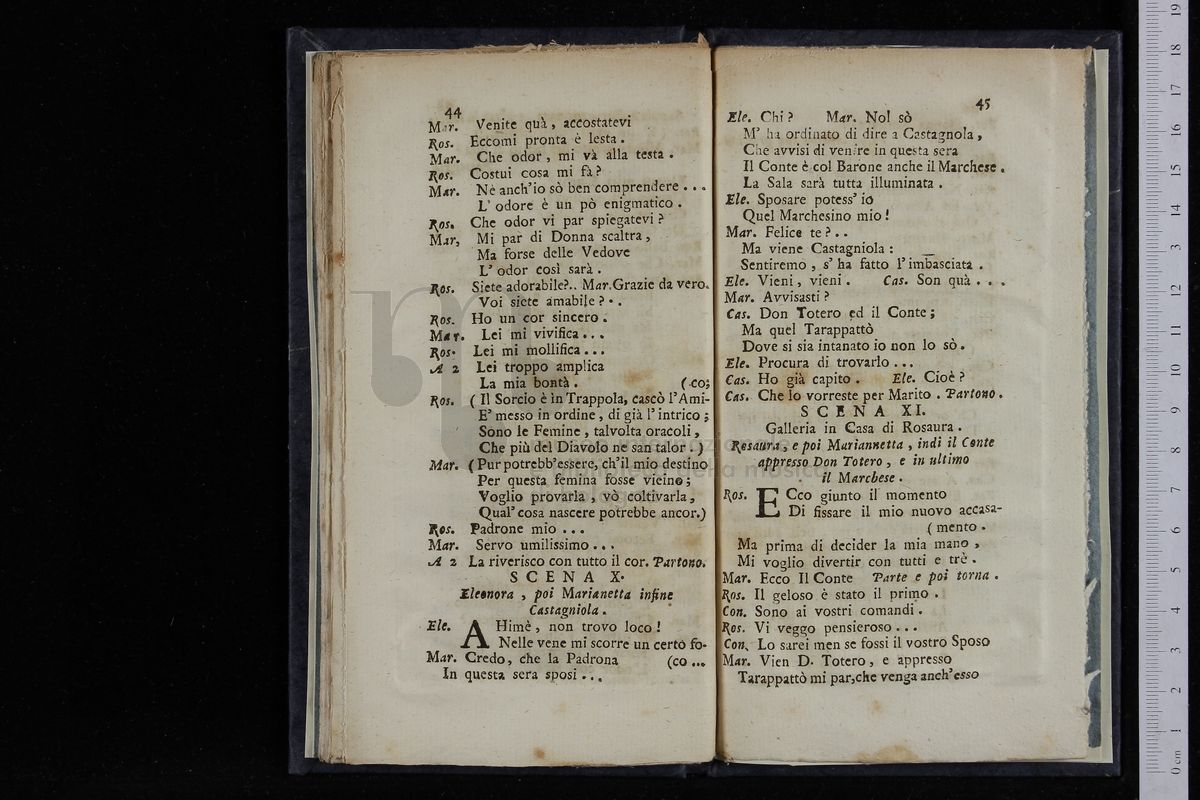 44
Mar. Venite quà, accostatevi
Ros. Eccomi pronta è lesta.
Mar. Che odor, mi và alla testa.
Ros. Costui cosa mi fà?
Mar. Nè anch'io sò ben comprendere...
L'odore è un pò enigmatico.
Ros. Che odor vi par spiegatevi?
Mar, Mi par di Donna scaltra,
Ma forse delle Vedove
L'odor così sarà.
Ros. Siete adorabile?.. Mar. Grazie da vero.
Voi siete amabile?..
Ros. Ho un cor sincero.
Mar. Lei mi vivifica...
Ros. Lei mi mollifica...
A 2 Lei troppo amplica
La mia bontà. (co;
Ros. (Il Sorcio è in Trappola, cascò l'Ami-
E' messo in ordine, di già l'intrico;
Sono le Femine, talvolta oracoli,
Che più del Diavolo ne san talor.)
Mar. (Pur potrebb'essere, ch'il mio destino
Per questa femina fosse vicino;
Voglio provarla, vò coltivarla,
Qual'cosa nascere potrebbe ancor.)
Ros. Padrone mio...
Mar. Servo umilissimo...
A 2 La riverisco con tutto il cor. Partono.
SCENA X.
Eleonora, poi Marianetta infine
Castagniola.
Ele. AHimè, non trovo loco!
Nelle vene mi scorre un certo fo-
Mar. Credo, che la Padrona (co...
In questa sera sposi...
45
Ele. Chi? Mar. Nol sò
M'ha ordinato di dire a Castagnola,
Che avvisi di venire in questa sera
Il Conte è col Barone anche il Marchese.
La Sala sarà tutta illuminata.
Ele. Sposare potess'io
Quel Marchesino mio!
Mar. Felice te?..
Ma viene Castagniola:
Sentiremo, s'ha fatto l'imbasciata.
Ele. Vieni, vieni. Cas. Son quà...
Mar. Avvisasti?
Cas. Don Totero ed il Conte;
Ma quel Tarappattò
Dove si sia intanato io non lo sò.
Ele. Procura di trovarlo...
Cas. Ho già capito. Ele. Cioè?
Cas. Che lo vorreste per Marito. Partono.
SCENA XI.
Galleria in Casa di Rosaura.
Rosaura, e poi Mariannetta, indi il Conte
appresso Don Totero, e in ultimo
il Marchese.
Ros. ECco giunto il momento
Di fissare il mio nuovo accasa-
(mento.
Ma prima di decider la mia mano,
Mi voglio divertir con tutti e trè.
Mar. Ecco Il Conte Parte e poi torna.
Ros. Il geloso è stato il primo.
Con. Sono ai vostri comandi.
Ros. Vi veggo pensieroso...
Con. Lo sarei men se fossi il vostro Sposo
Mar. Vien D. Totero, e appresso
Tarappattò mi par, che venga anch'esso